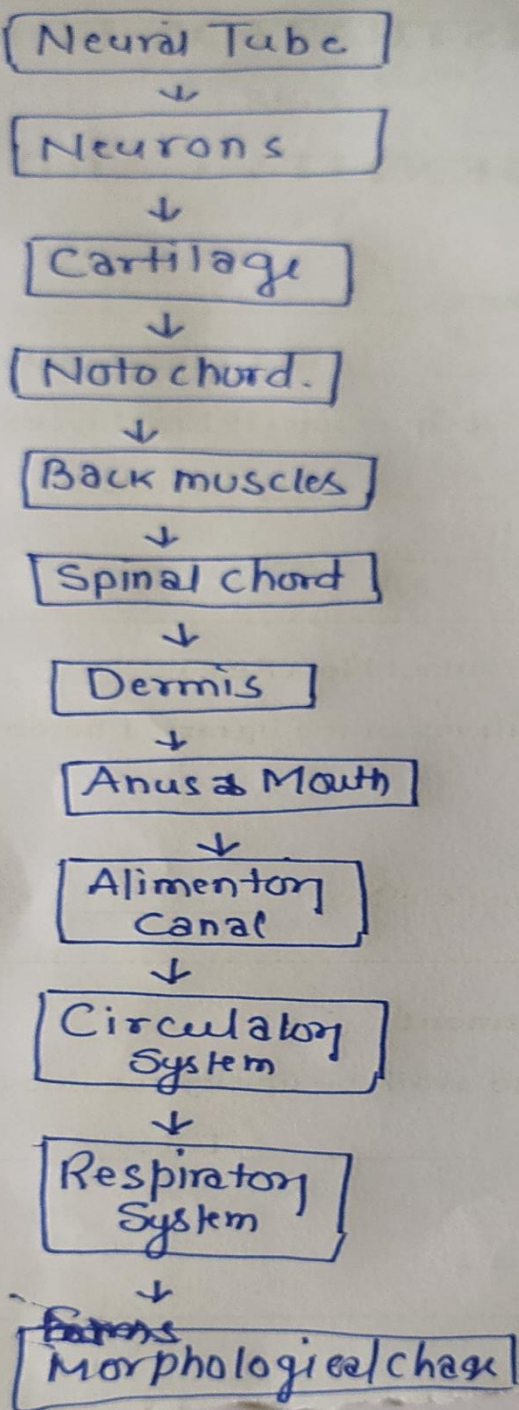 Neural Tube
↓
Neurons
↓
Cartilage
↓
Noto chord.
↓
Back muscles
↓
Spinal chord
↓
Dermis
↓
Anus & Mouth
↓
Alimentory
Canal
↓
Circulatory
System
↓
Respiratory
System
↓
Morphological